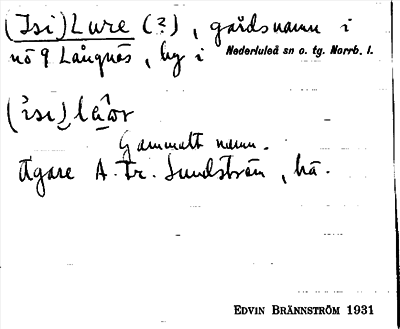 (Isi)Lure (?), gårdsnamn i
nö 9 Långnäs, by i Nederluleå sn o. tg. Norrb. l.
Gammalt namn.
Ägare A. Fr. Sundström, hä.
EDVIN BRÄNNSTRÖM 1931